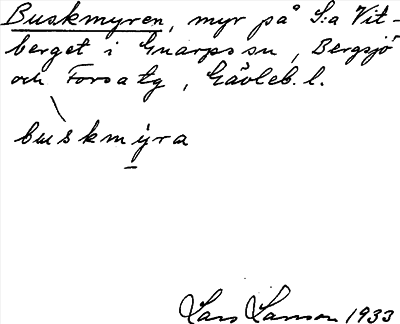 Buskmyren, myr på S:a Vit-
berget i Gnarps sn, Bergsjö
och Forsa tg, Gävleb. l.
buskmyra
Lars Larsson 1933